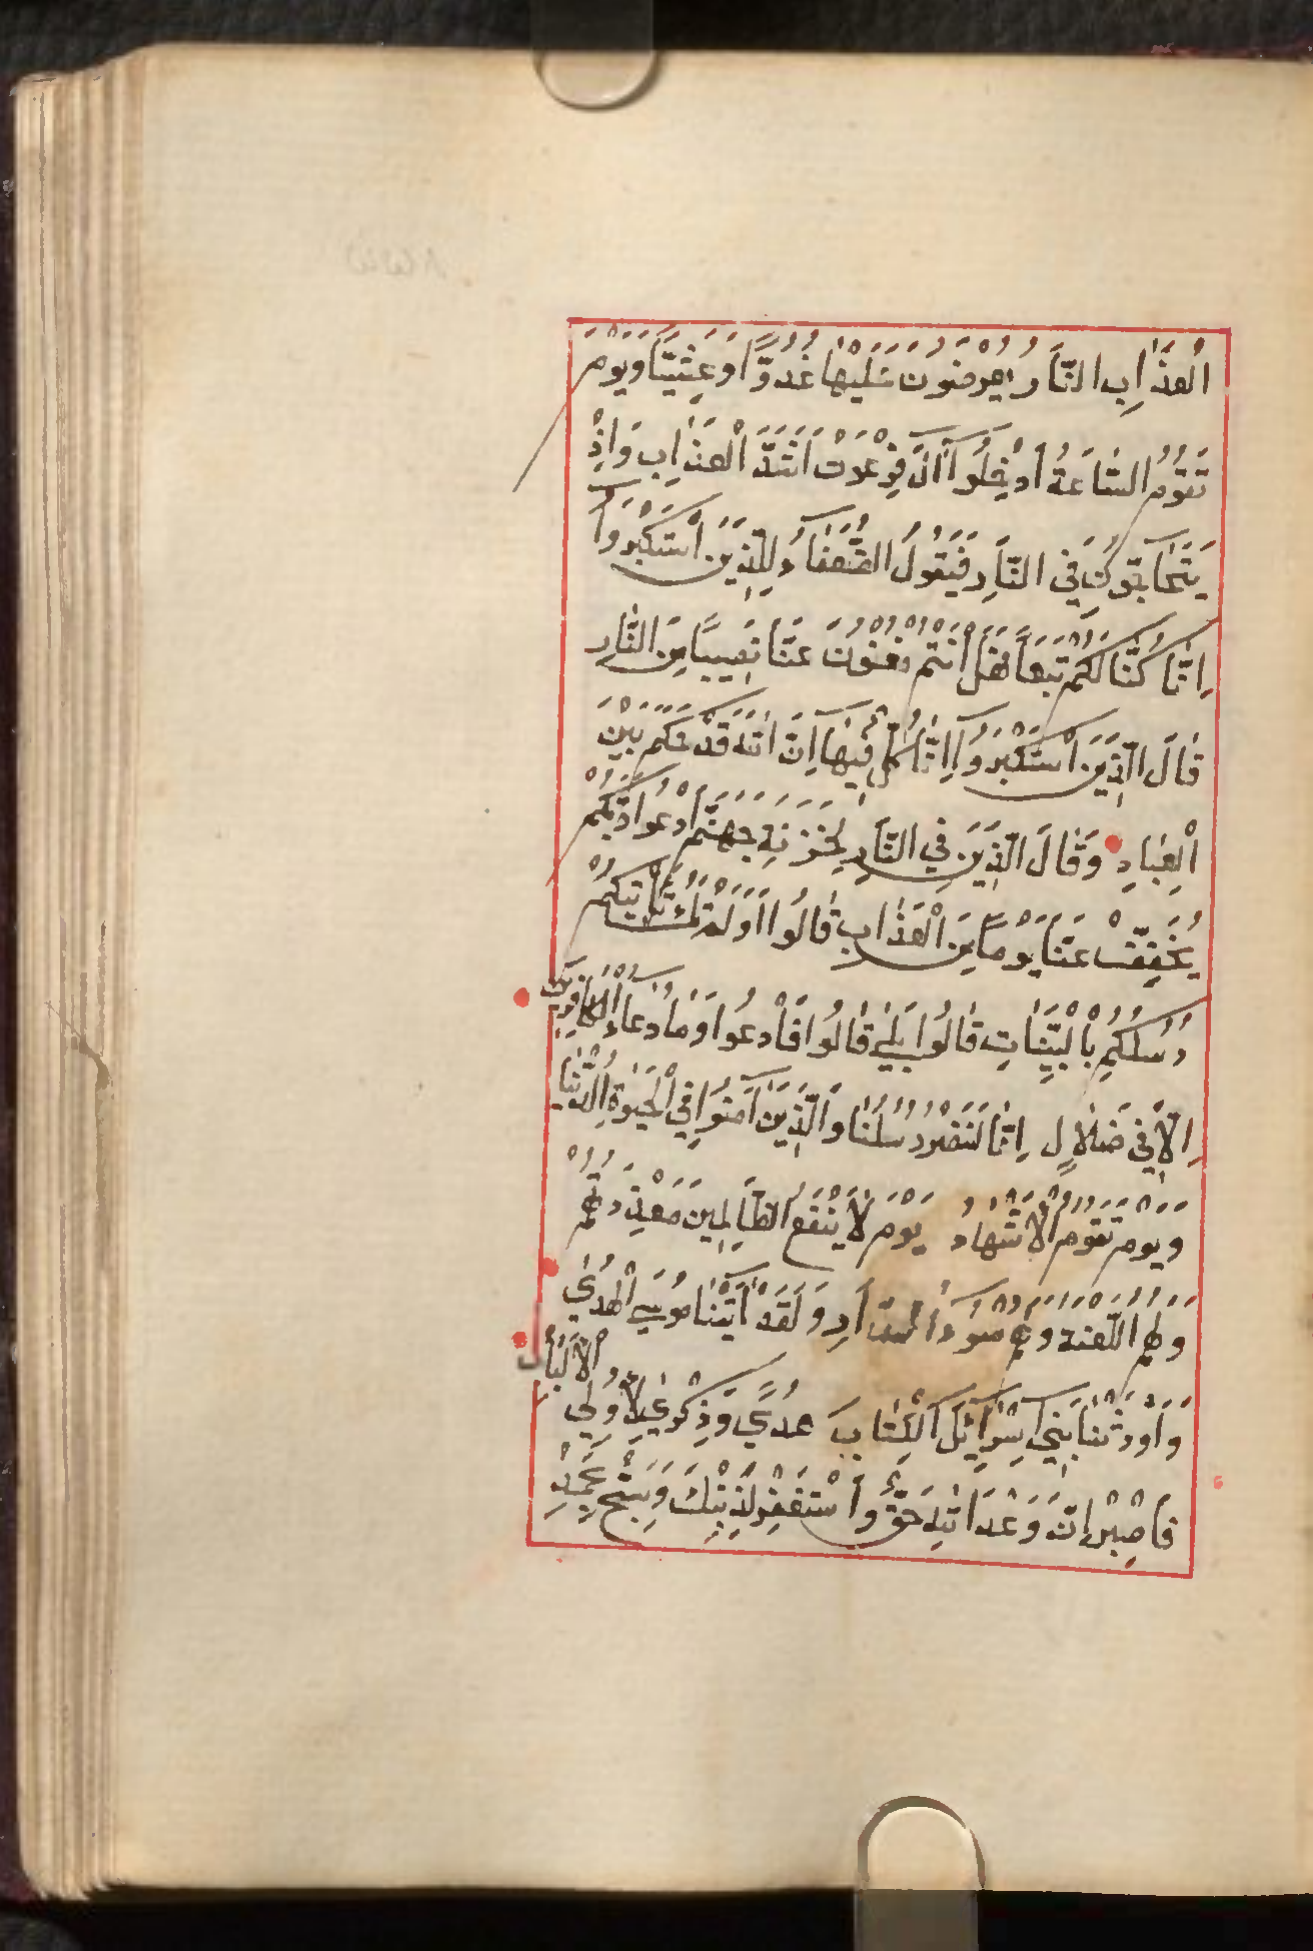 الْعَذَابِ النَّارُ يُعْرَضُونَ عَلَيْهَا غُدُوًّا وَعَشِيًّا وَيَوْمَ
تَقُومُ السَّاعَةُ أَدْخِلُوا آلَ فِرْعَوْنَ أَشَدَّ الْعَذَابِ وَإِذْ
يَتَحَاجُّونَ فِي النَّارِ فَيَقُولُ الضُّعَفَاءُ لِلَّذِينَ اسْتَكْبَرُوا
إِنَّا كُنَّا لَكُمْ تَبَعًا فَهَلْ أَنْتُمْ مُغْنُونَ عَنَّا نَصِيبًا مِنَ النَّارِ
قَالَ الَّذِينَ اسْتَكْبَرُوا إِنَّا كُلٌّ فِيهَا إِنَّ اللَّهَ قَدْ حَكَمَ بَيْنَ
الْعِبَادِ وَقَالَ الَّذِينَ فِي النَّارِ لِخَزَنَةِ جَهَنَّمَ ادْعُوا رَبَّكُمْ
يُخَفِّفْ عَنَّا يَوْمًا مِنَ الْعَذَابِ قَالُوا أَوَلَمْ تَكُ تَأْتِيكُمْ
رُسُلُكُمْ بِالْبَيِّنَاتِ قَالُوا بَلَى قَالُوا فَادْعُوا وَمَا دُعَاءُ الْكَافِرِينَ
إِلَّا فِي ضَلَالٍ إِنَّا لَنَنْصُرُ رُسُلَنَا وَالَّذِينَ آمَنُوا فِي الْحَيَوةِ الدُّنْيَا
وَيَوْمَ تَقُومُ الْأَشْهَادُ يَوْمَ لَا يَنْفَعُ الظَّالِمِينَ مَعْذِرَتُهُمْ
وَلَهُمُ اللَّعْنَةُ وَلَهُمْ سُوءُ الدَّارِ وَلَقَدْ آتَيْنَا مُوسَى الْهُدَى
وَأَوْرَثْنَا بَنِي إِسْرَائِيلَ الْكِتَابَ هُدًى وَذِكْرَى لِأُولِي الْأَلْبَابِ
فَاصْبِرْ إِنَّ وَعْدَ اللَّهِ حَقٌّ وَاسْتَغْفِرْ لِذَنْبِكَ وَسَبِّحْ بِحَمْدِ